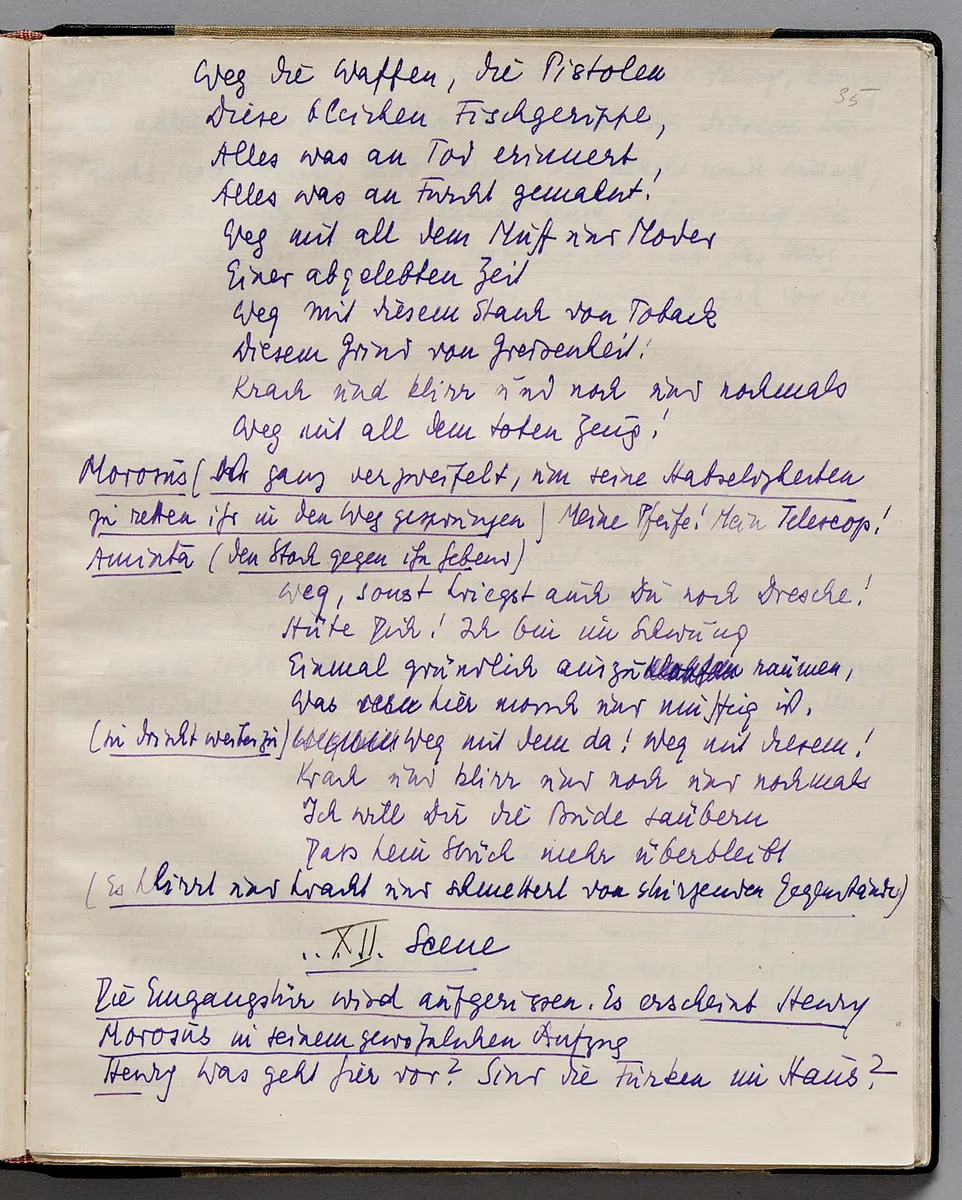 35
Weg die Waffen, die Pistolen
Diese bleichen Fischgerippe,
Alles was an Tod erinnert,
Alles was an Furcht gemahnt!
Weg mit all dem Muff und Moder
Einer abgelebten Zeit
Weg mit diesem Stank von Toback
Diesem Grind von Greisenheit!
Krach und klirr und noch und nochmals
Weg mit all dem toten Zeug!
Morosus ( ganz verzweifelt, um seine Habseligkeiten
zu retten ihr in den Weg gesprungen) Meine Pfeife! Mein Telescop!
Aminta (den Stock gegen ihn hebend)
Weg, sonst kriegst auch Du noch Dresche!
Hüte Dich! Ich bin im Schwung
Einmal gründlich auszu räumen,
Was hier morsch und muffig ist.
(sie drischt weiter zu) Weg mit dem da! Weg mit diesem!
Krach und klirr und noch und nochmals
Ich will Dir die Bude säubern
Dass kein Stück mehr überbleibt
(Es klirrt und kracht und schmettert von stürzenden Gegenständen)
XII. Scene
Die Eingangstür wird aufgerissen. Es erscheint Henry
Morosus in seinem gewöhnlichen Aufzug
Henry Was geht hier vor? Sind die Türken im Haus?